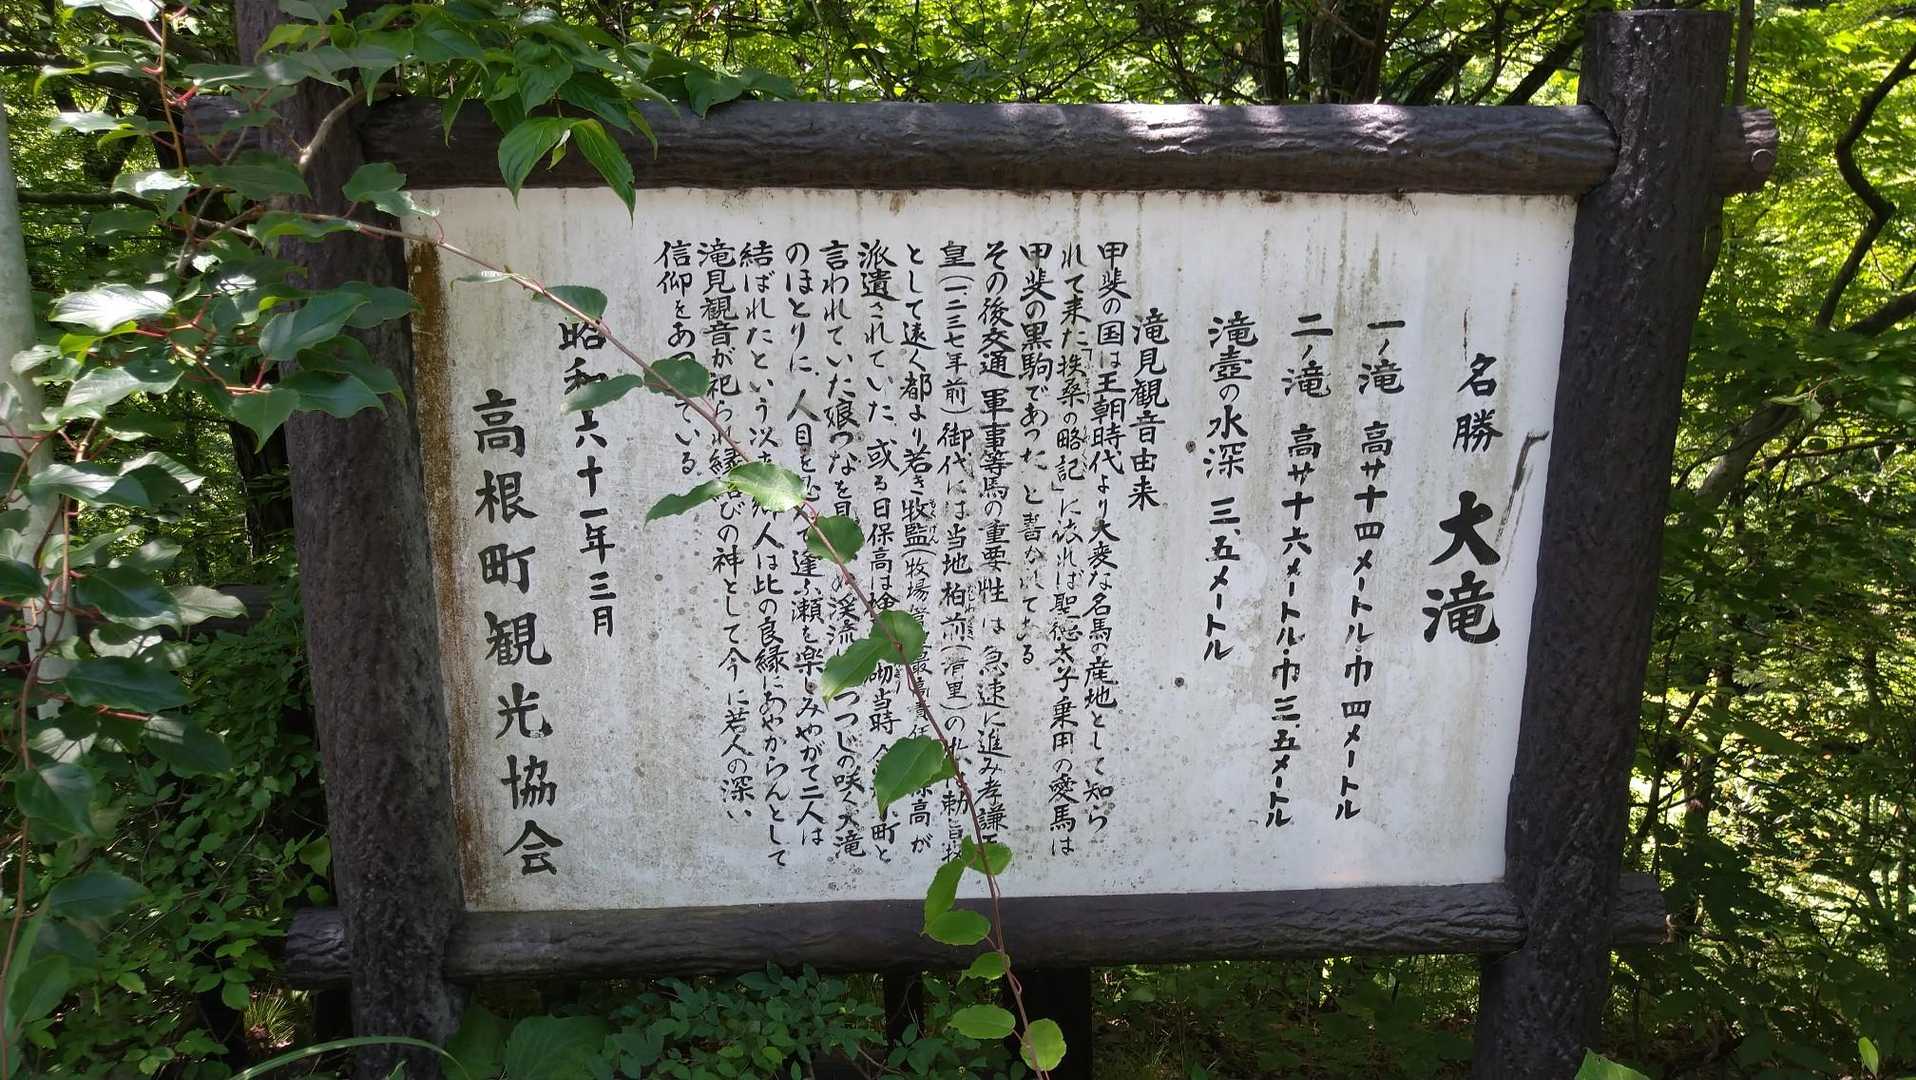 名勝 大滝
一ノ滝 高サ十四メートル・巾四メートル
二ノ滝 高サ十六メートル・巾三.五メートル
滝壺の水深 三.五メートル
滝見観音由来
甲斐の国は王朝時代より大変な名馬の産地として知ら
れて来た「扶桑の略記」に依れば聖徳太子乗用の愛馬は
甲斐の黒駒であった と書かれてある
その後交通 軍事等馬の重要性は 急速に進み孝謙天
皇(一二三七年前)御代には当地柏前(清里)の 勅旨牧
として遠く都より若き牧監(牧場 最高責任 保高が
派遣されていた 或る日保高は検 砌当時 町と
言われていた娘つなを見 渓流 つつじの咲く大滝
のほとりに、人目を忍んで逢ふ瀬を楽しみやがて二人は
結ばれたという以来 人は此の良縁にあやからんとして
滝見観音が祀られ縁結びの神として今に若人の深い
信仰をあつている
昭和六十一年三月
高根町観光協会